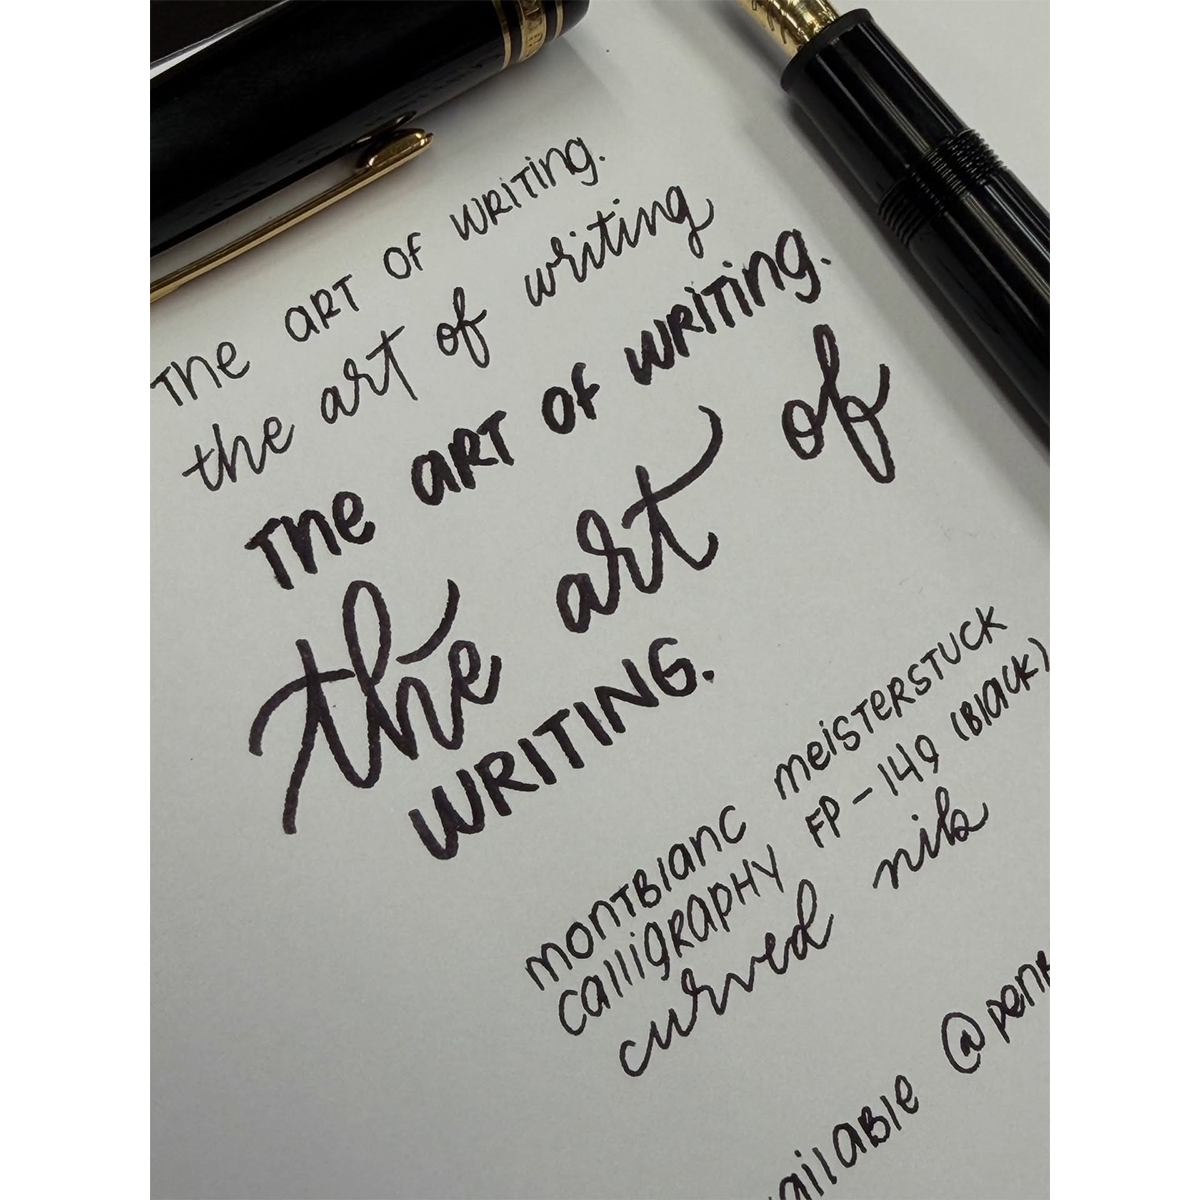 The ART OF WRiTing.
the art of writing
The ART OF WRiTing.
the art of
WRITING.
monTBlanc meiSTeRSTUCK
CalligRaPHY FP-149 (Black)
curved nib